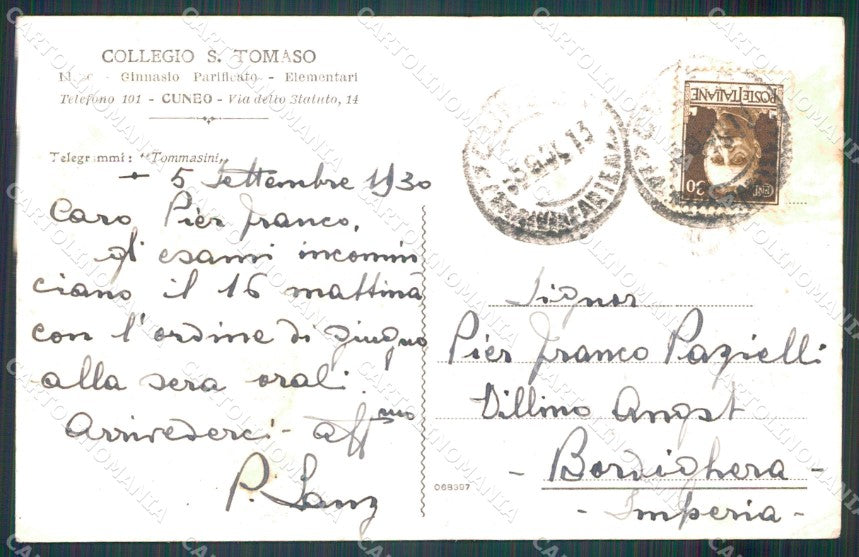 COLLEGIO S. TOMASO
Ginnasio Parificato - Elementari
Telefono 101 - CUNEO - Via dello Statuto, 14
Telegrammi: "Tommasini"
5 Settembre 1930
Caro Pier Franco,
gl' esami incomin
ciano il 16 mattina
con l'ordine di giugno
alla sera orali.
Arrivederci - aff.mo
P. Lanz
069397
POSTE ITALIANE
CENT. 30
Signor
Pier Franco Pazielli
Villino Angst
- Bordighera -
- Imperia -
CARTOLINOMANIA